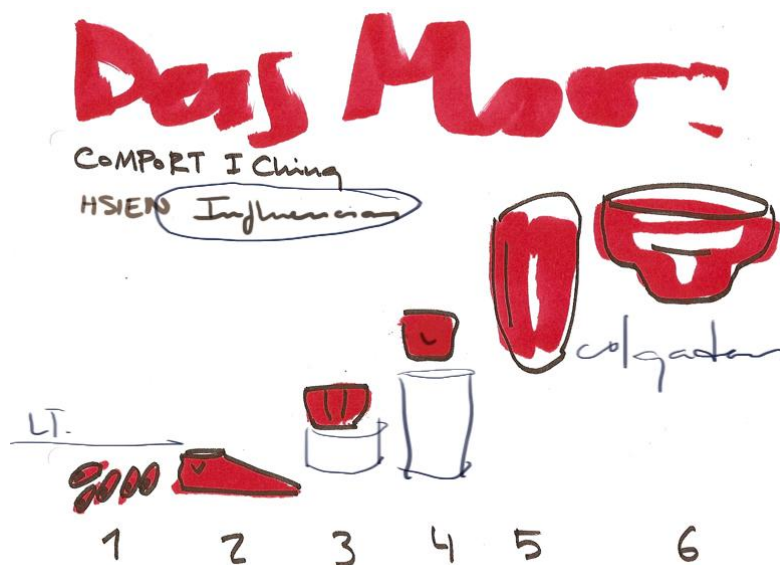 Deas Moor
COMPORT I Ching
HSIEN Influencias
colgadas
LT.
1 2 3 4 5 6